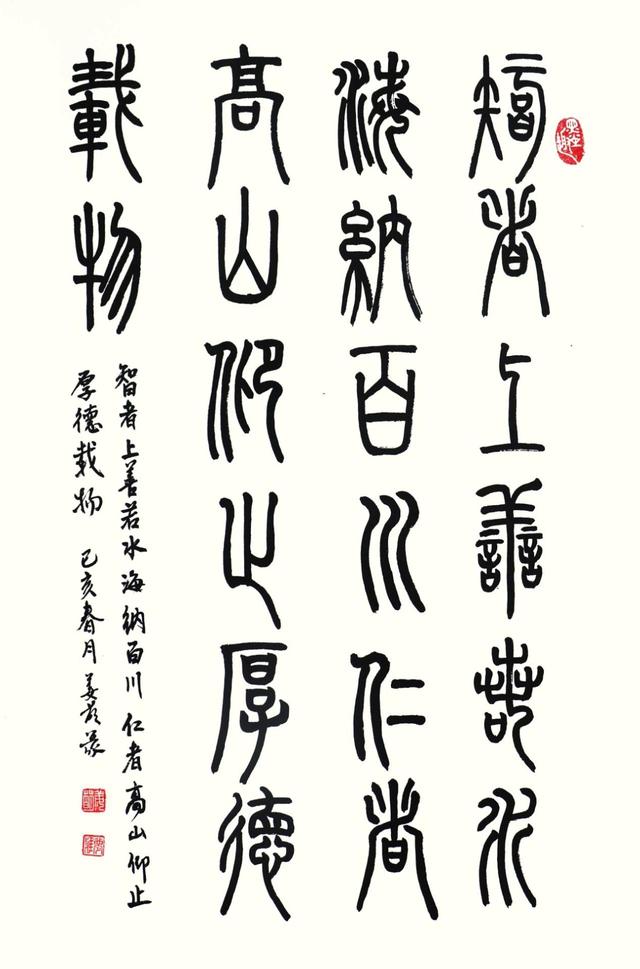 智者上善若水
海納百川仁者
高山仰止厚德
載物
智者上善若水海納百川仁者高山仰止
厚德載物 己亥春月姜